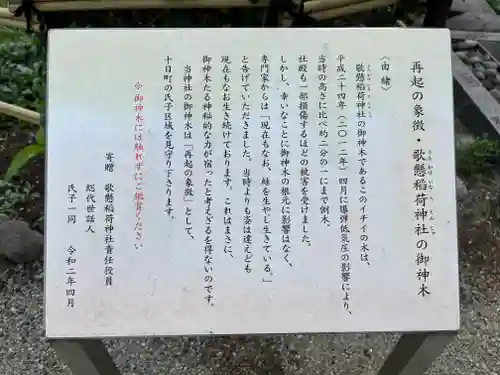 再起の象徴・歌懸稲荷神社の御神木
うたかけいなりじんじゃ
〈由緒〉
歌懸稲荷神社の御神木であるこのイチイの木は、
平成二十四年（二〇一二年）四月に爆弾低気圧の影響により、
当時の高さに比べ約二分の一にまで倒木、
社殿も一部損傷するほどの被害を受けました。
しかし、幸いなことに御神木の根元に影響はなく、
専門家からは「現在もなお、緑を生やし生きている。」
と告げていただきました。当時よりも姿は違えども
現在もなお生き続けております。これはまさに、
御神木たる神秘的な力が宿ったと考えざるを得ないのです。
当神社の御神木は「再起の象徴」として、
十日町の氏子区域を見守り下さります。
※御神木には触れずにご鑑賞ください
寄贈　歌懸稲荷神社責任役員
総代世話人
氏子一同　令和二年四月